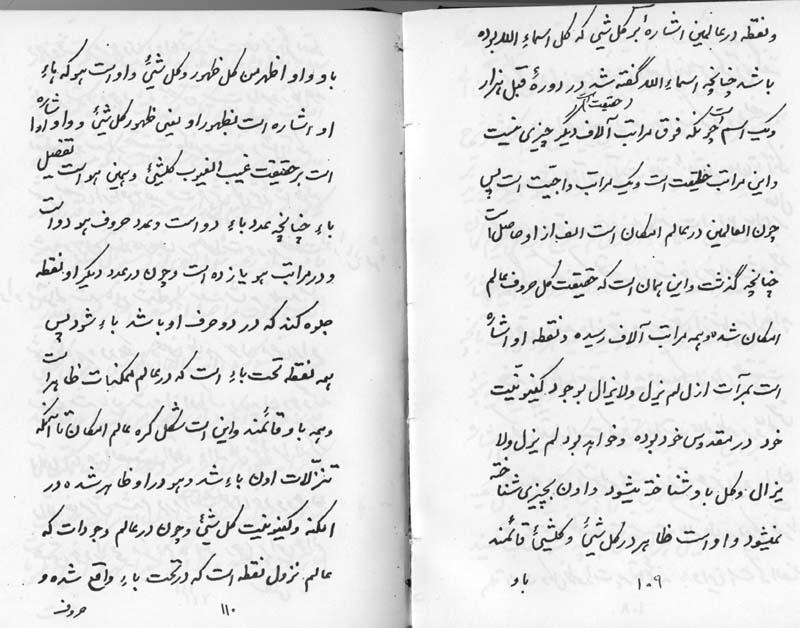 و نقطه در عالمین اشاره بر کل شیئ که کل اسماء الله بوده
باشد چنانچه اسماء الله گفته شد در دورۀ قبل هزار
و یک اسم است حقیقت چونکه فوق مراتب آلاف دیگر چیزی نیست
و این مراتب خلیقت است و یک مراتب واجبیت است پس
چون العالمین در عالم امکان است الف از او حاصل است
چنانچه گذشت و این همان است که حقیقت کل حروف عالم
امکان شده و همه مراتب آلاف رسیده و نقطه او اشاره
است بمرآت ازل لم یزل و لا یزال بوجود کینونیت
خود در مقدوس خود بوده و خواهد بود لم یزل و لا
یزال و کل باو شناخته میشود و او بچیزی شناخته
نمیشود و او است ظاهر در کل شیئ و کلشیئ قائمند
باو
۱۰۹
باو و او اظهر من کل ظهور و کل شیئ و او است هو که هاء
او اشاره است بظهور او یعنی ظهور کل شیئ و واو او اشاره
است بر حقیقت غیب الغیوب کلشیئ و همین هو است تفصیل
باء چنانچه عدد باء دو است و عدد حروف هو دو است
و در مراتب هو یازده است و چون در عدد دیگر او نقطه
جلوه کند که در دو حرف او باشد باء شود پس
همه نقطه تحت باء است که در عالم ممکنات ظاهر است
و همه باو قائمند و این است شکل کره عالم امکان تا آنکه
تنزلات اون باء شد و هو در او ظاهر شده در
امکنه و کینونیت کل شیئ و چون در عالم وجودات که
عالم نزول نقطه است که در تحت باء واقع شده و
حروف
۱۱۰